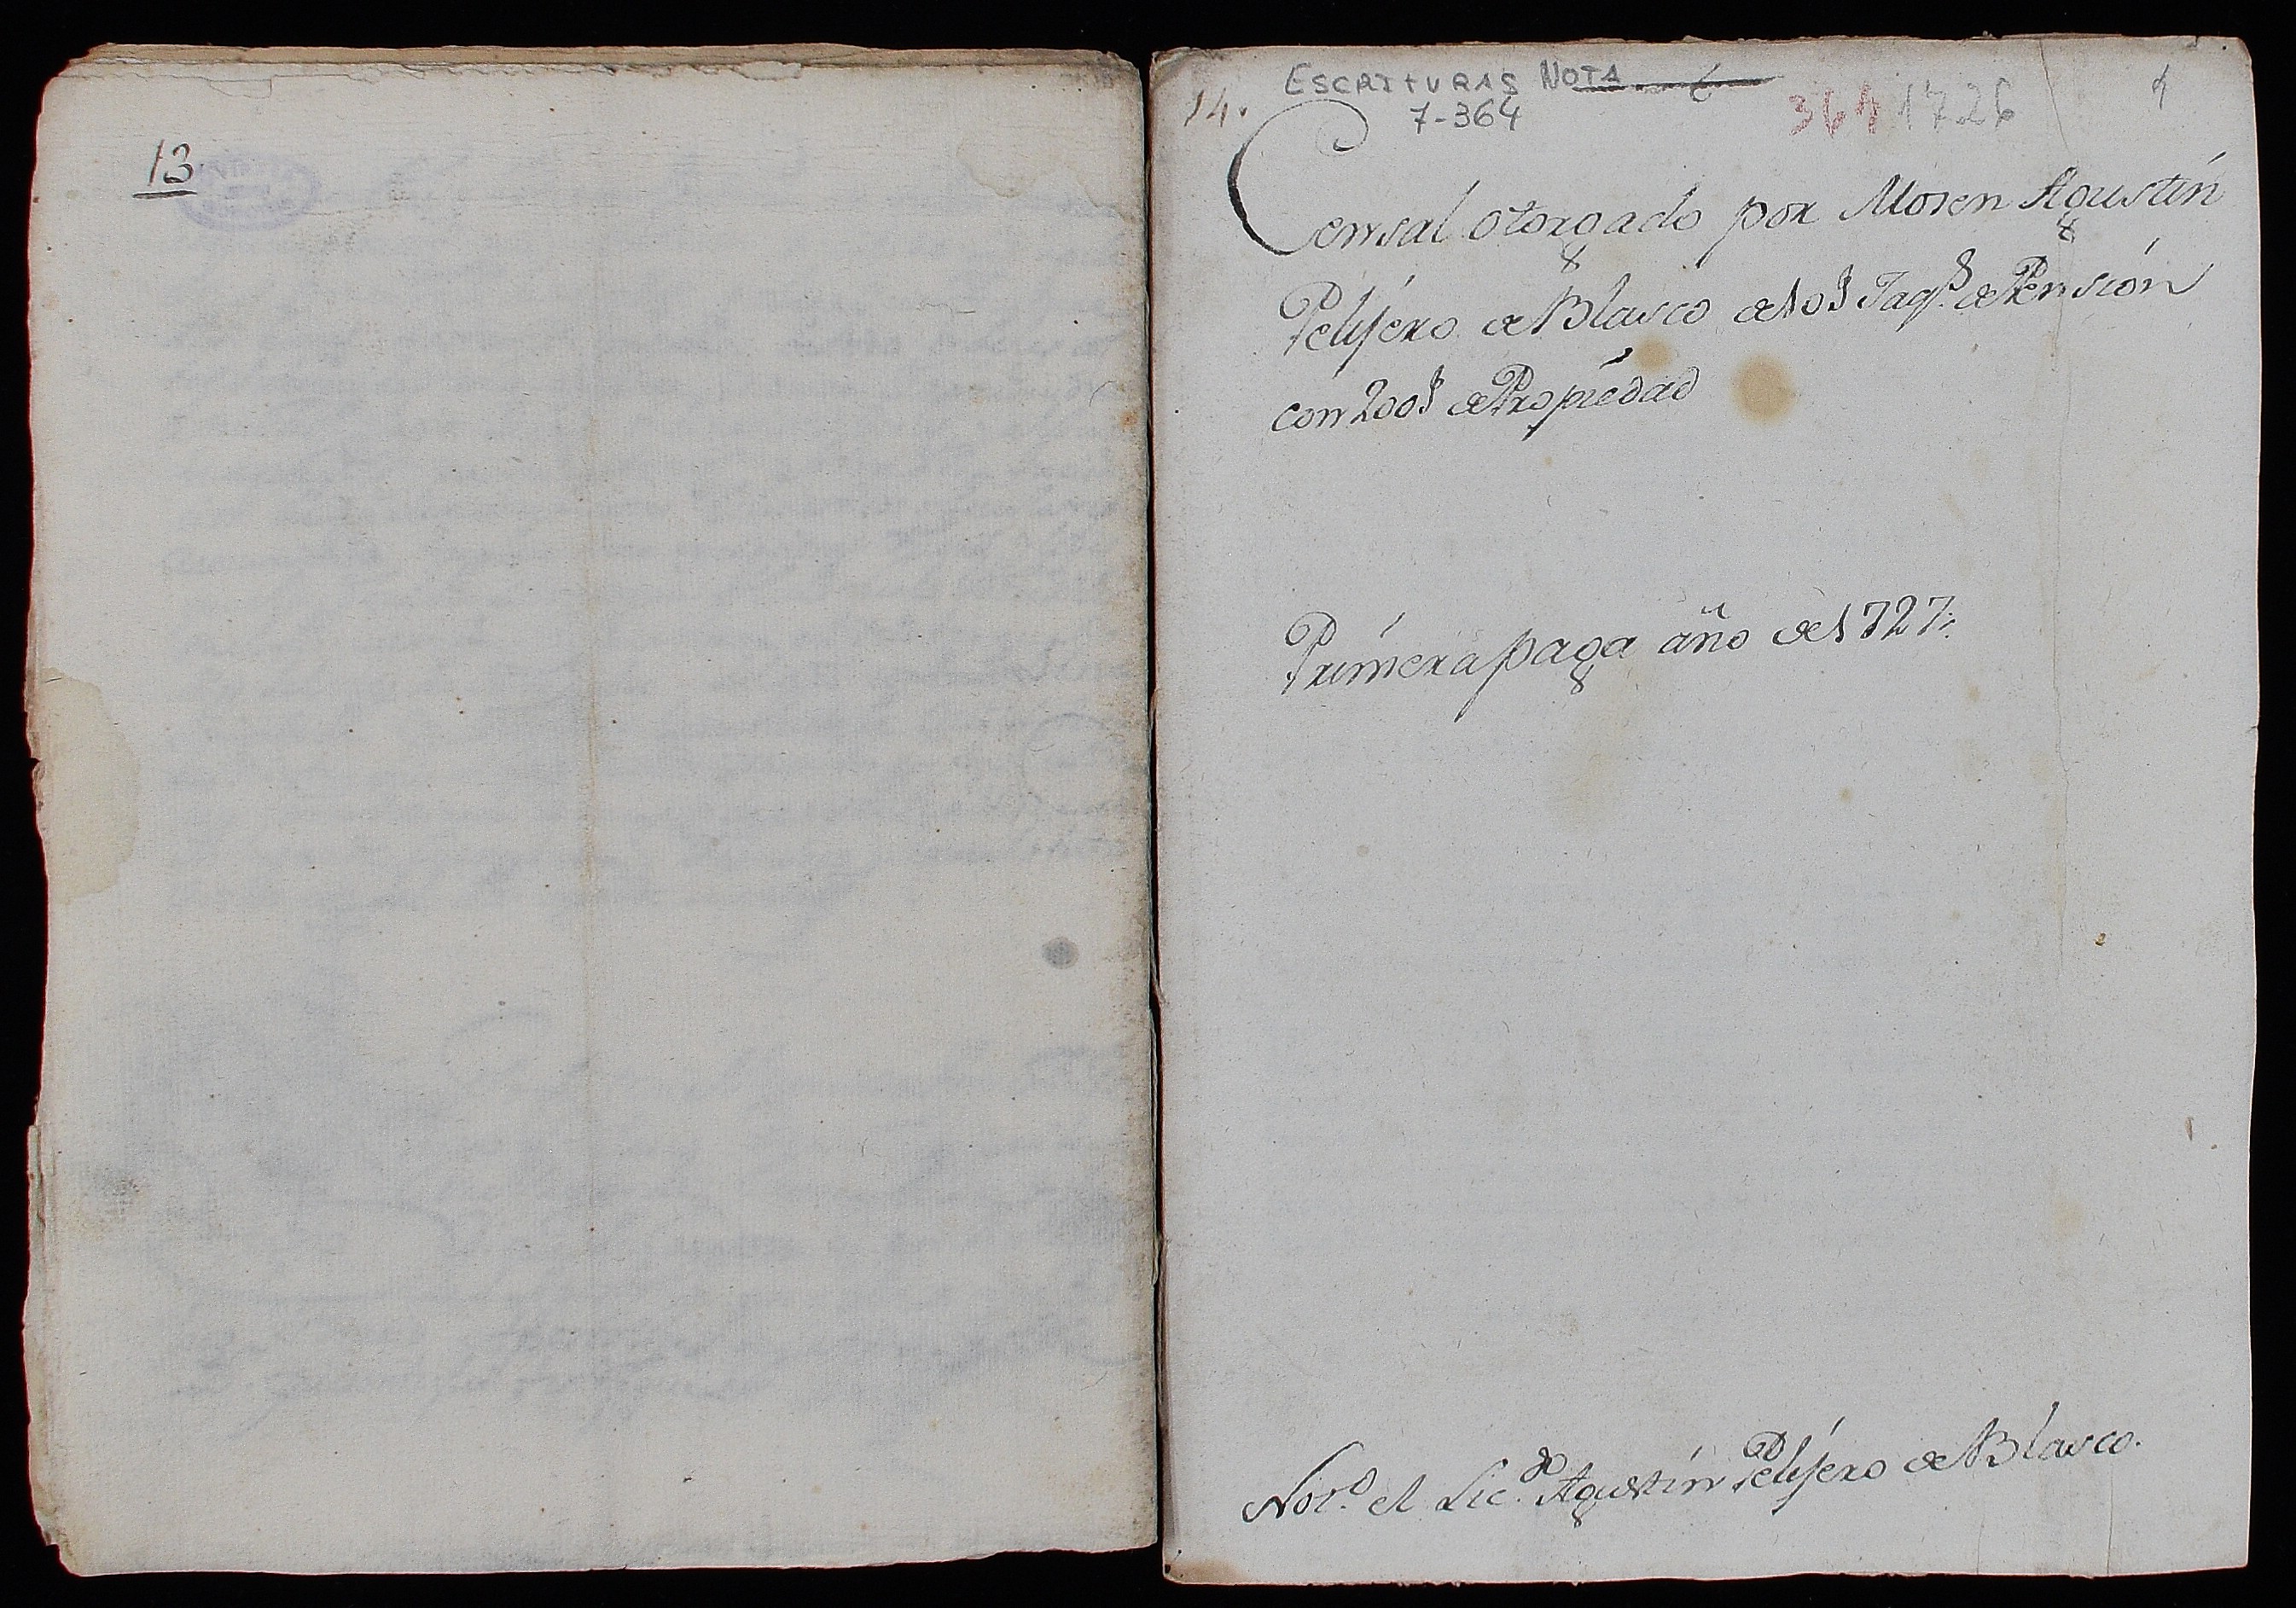 13
ESCRITURAS NOTA 6
14. 7-364 364 1726
Censal otorgado por Mosen Agustin
Pelijero de Blasco de 10 s Jaqs. de Pension
con 200 s de Propiedad
Primera paga año de 1727.
Not.º el Lic.do Agustin Pelijero de Blasco.